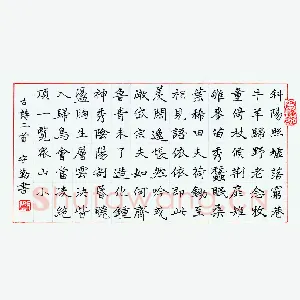 斜陽照墟落窮巷
牛羊歸野老念牧
童倚杖候荊扉雉
雊麥苗秀蠶眠桑
葉稀田夫荷鋤至
相見語依依即此
羨閒逸悵然吟式
微岱宗夫如何齊
魯青未了造化鍾
神秀陰陽割昏曉
盪胸生層雲決眥
入歸鳥會當凌絕
頂一覽眾山小
古詩二首 書